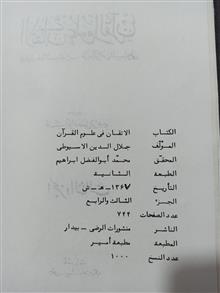 الكتاب الاتقان فى علوم القرآن
المؤلف جلال الدين الاسيوطى
المحقق محمد أبوالفضل ابراهيم
الطبعة الثانية
التأريخ ١٣٦٧ - هـ - ش
الجزء الثالث والرابع
عدد الصفحات ٧٤٤
الناشر منشورات الرضى - بيدار
المطبعة مطبعة أمير
عدد النسخ ١٠٠٠